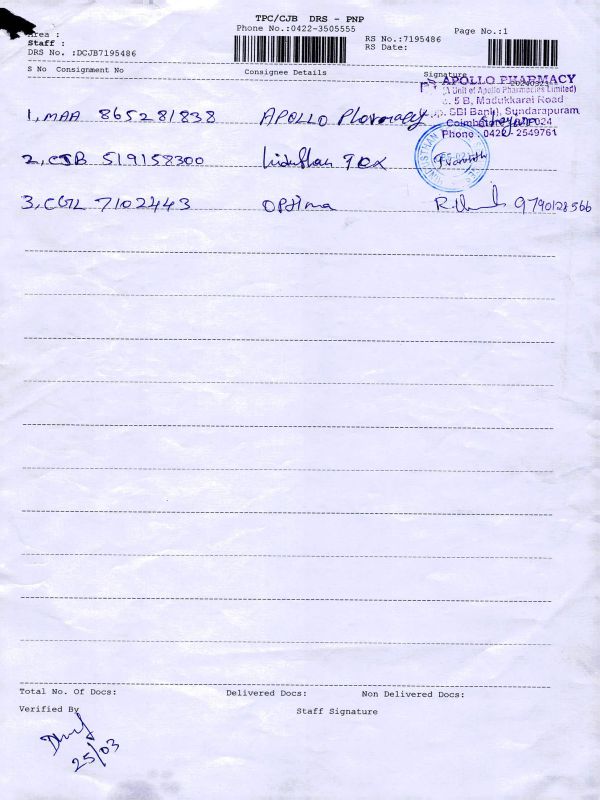 TPC/CJB DRS - PNP
Phone No.:0422-3505555
Page No.:1
Area :
Staff :
RS No.:7195486
DRS No. :DCJB7195486
RS Date:
S No Consignment No Consignee Details Signature
APOLLO PHARMACY
(A Unit of Apollo Pharmacies Limited)
5 B, Madukkarai Road
SBI Bank), Sundarapuram
Coimbatore 024
Phone : 0422 - 2549761
1, MAA 865281838 APOLLO Pharmacy
2, CJB 519158300
3, CGL 7102443 Optima 9790128566
Total No. Of Docs: Delivered Docs: Non Delivered Docs:
Verified By Staff Signature
25/03